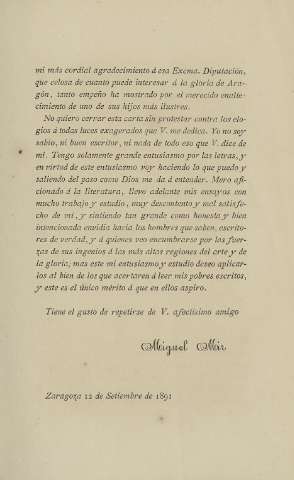 mi más cordial agradecimiento á esa Excma. Diputación,
que celosa de cuanto puede interesar á la gloria de Ara-
gón, tanto empeño ha mostrado por el merecido enalte-
cimiento de uno de sus hijos más ilustres.
No quiero cerrar esta carta sin protestar contra los elo-
gios á todas luces exagerados que V. me dedica. Yo no soy
sabio, ni buen escritor, ni nada de todo eso que V. dice de
mí. Tengo solamente grande entusiasmo por las letras, y
en virtud de este entusiasmo voy haciendo lo que puedo y
saliendo del paso como Dios me da á entender. Mero afi-
cionado á la literatura, llevo adelante mis ensayos con
mucho trabajo y estudio, muy descontento y mal satisfe-
cho de mí, y sintiendo tan grande como honesta y bien
intencionada envidia hacia los hombres que saben, escrito-
res de verdad, y á quienes veo encumbrarse por las fuer-
zas de sus ingenios á las más altas regiones del arte y de
la gloria; mas este mi entusiasmo y estudio deseo aplicar-
los al bien de los que acertaren á leer mis pobres escritos,
y este es el único mérito á que en ellos aspiro.
Tiene el gusto de repetirse de V. afectísimo amigo
Miguel Mir
Zaragoza 12 de Setiembre de 1891